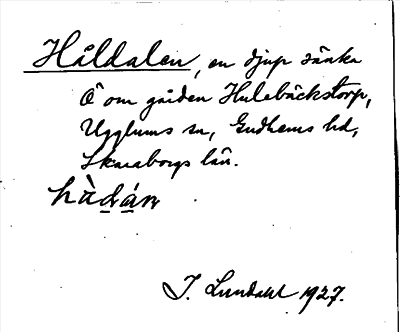 Håldalen, en djup sänka
Ö om gården Hulebäckstorp,
Ugglums sn, Gudhems hd,
Skaraborgs län.
hàdán
J. Lundahl 1927.